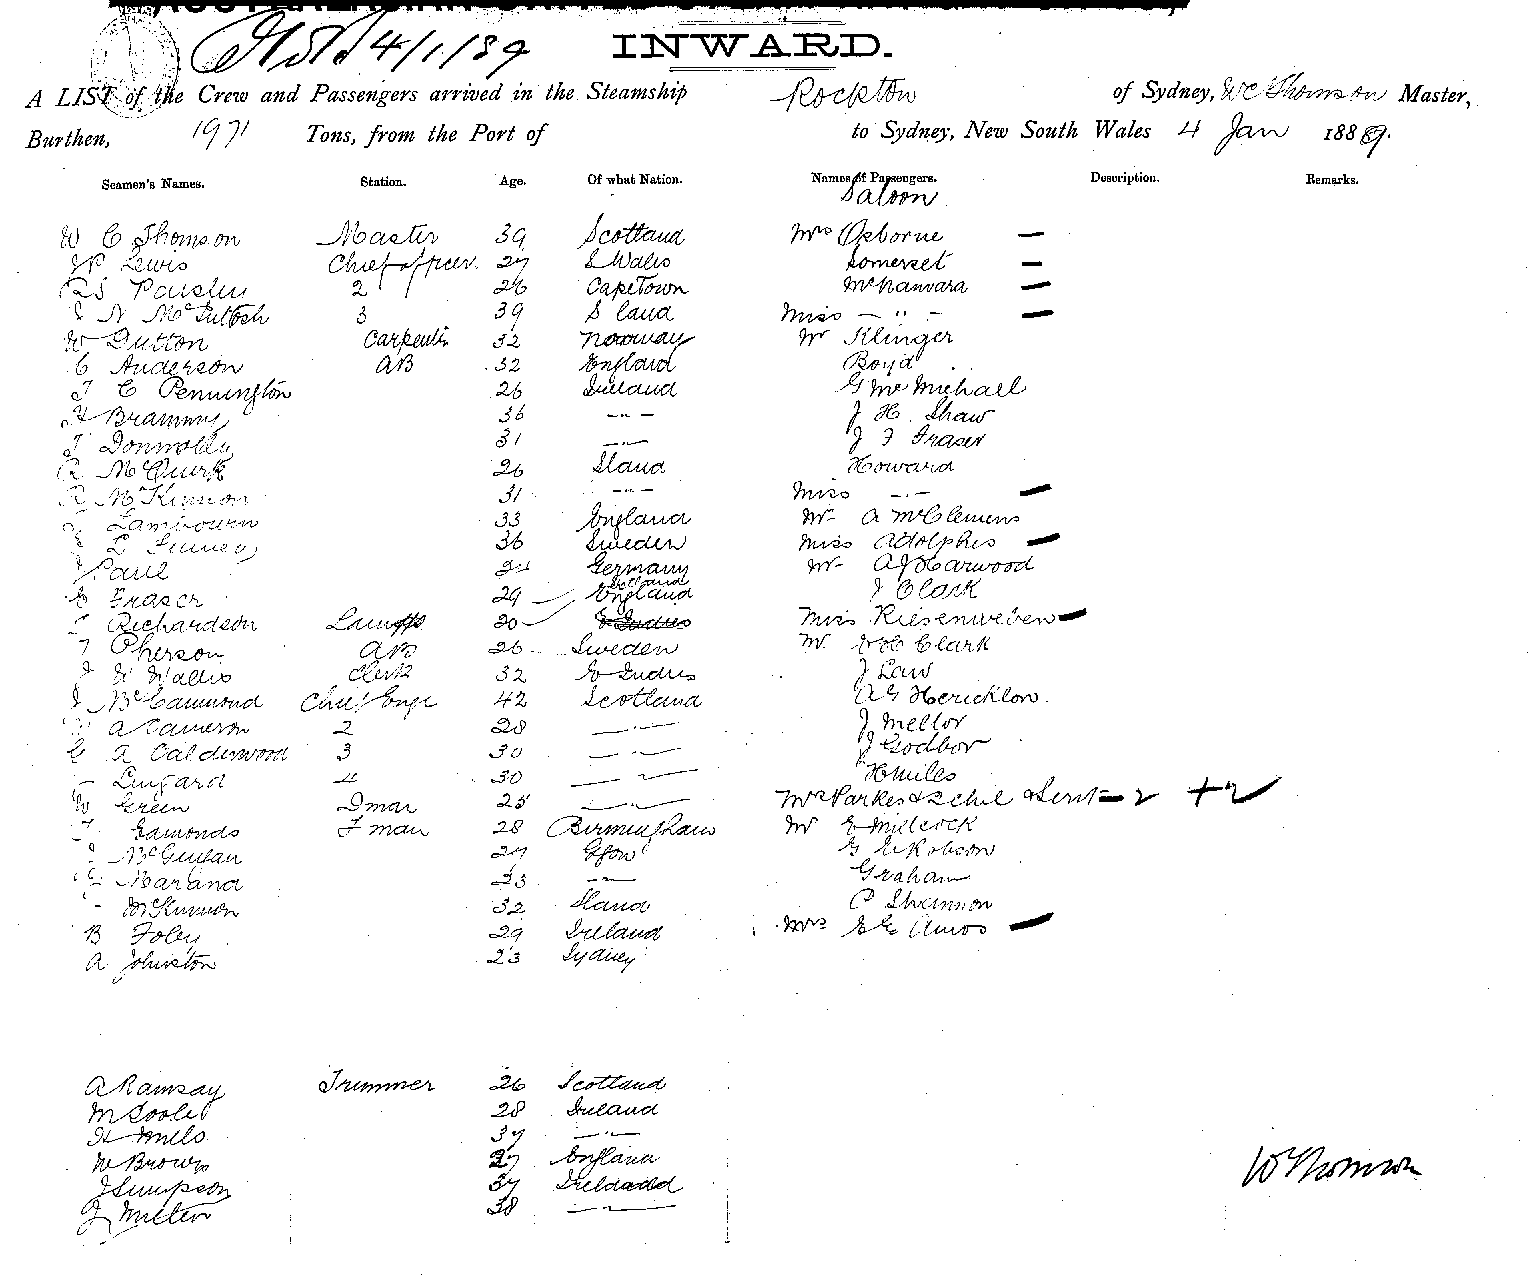 4/1/89
INWARD.
A LIST of the Crew and Passengers arrived in the Steamship Rockton of Sydney, WC Thomson Master,
Burthen, 1971 Tons, from the Port of to Sydney, New South Wales 4 Jan 1889.
Seamen's Names. Station. Age. Of what Nation. Names of Passengers. Description. Remarks.
Saloon
W C Thomson Master 39 Scotland Mrs Osborne —
Lewis Chief officer 27 S Wales Somerset —
Paisley 2 26 CapeTown McNamara —
N McIntosh 3 39 S land Miss — " — —
W Dutton Carpentr 32 Norway Mr Klinger
C Anderson AB 32 England Boyd
T C Pennington 26 Ireland G McMichall
H Brammy 36 — " — J H. Shaw
T Donnolly 31 — " — J F Fraser
R McQuirk 26 Sland Howard
R McKinnon 31 — " — Miss — " — —
Lambourn 33 England Mr A McClemens
L 36 Sweden Miss Adolphis —
Paul Germany Mr A J Harwood
Fraser 29 England Scotland J Clark
Richardson Lamps 20 E Indies Miss Riesenweben —
Pherson AB 26 Sweden Mr Clark
J W Wallis Clerk 32 E Indies J Law
J McCammond Chief Engr 42 Scotland A G Hericklon
A Cameron 2 28 — " — J Mellor
G A Calderwood 3 30 — " — J Godbor
— Lingard 4 30 — " — H Miles
W Green Dman 25 — " — Mrs Parkes & 2 chil & Servt — 2 + 2
T Edmonds F man 28 Birmingham Mr E Millcock
27 Gsow G E Robson
Marland 23 — " — Graham
- McKinnon 32 Sland C Shannon
B Foley 29 Ireland Mrs E G Amos —
A Johnston 23 Sydney
A Ramsay Trimmer 26 Scotland
M Toole 28 Ireland
H Mills 37 — " —
W Brown 27 England
J Simpson 37 Ireland
J Milten 38 — " —
WC Thomson